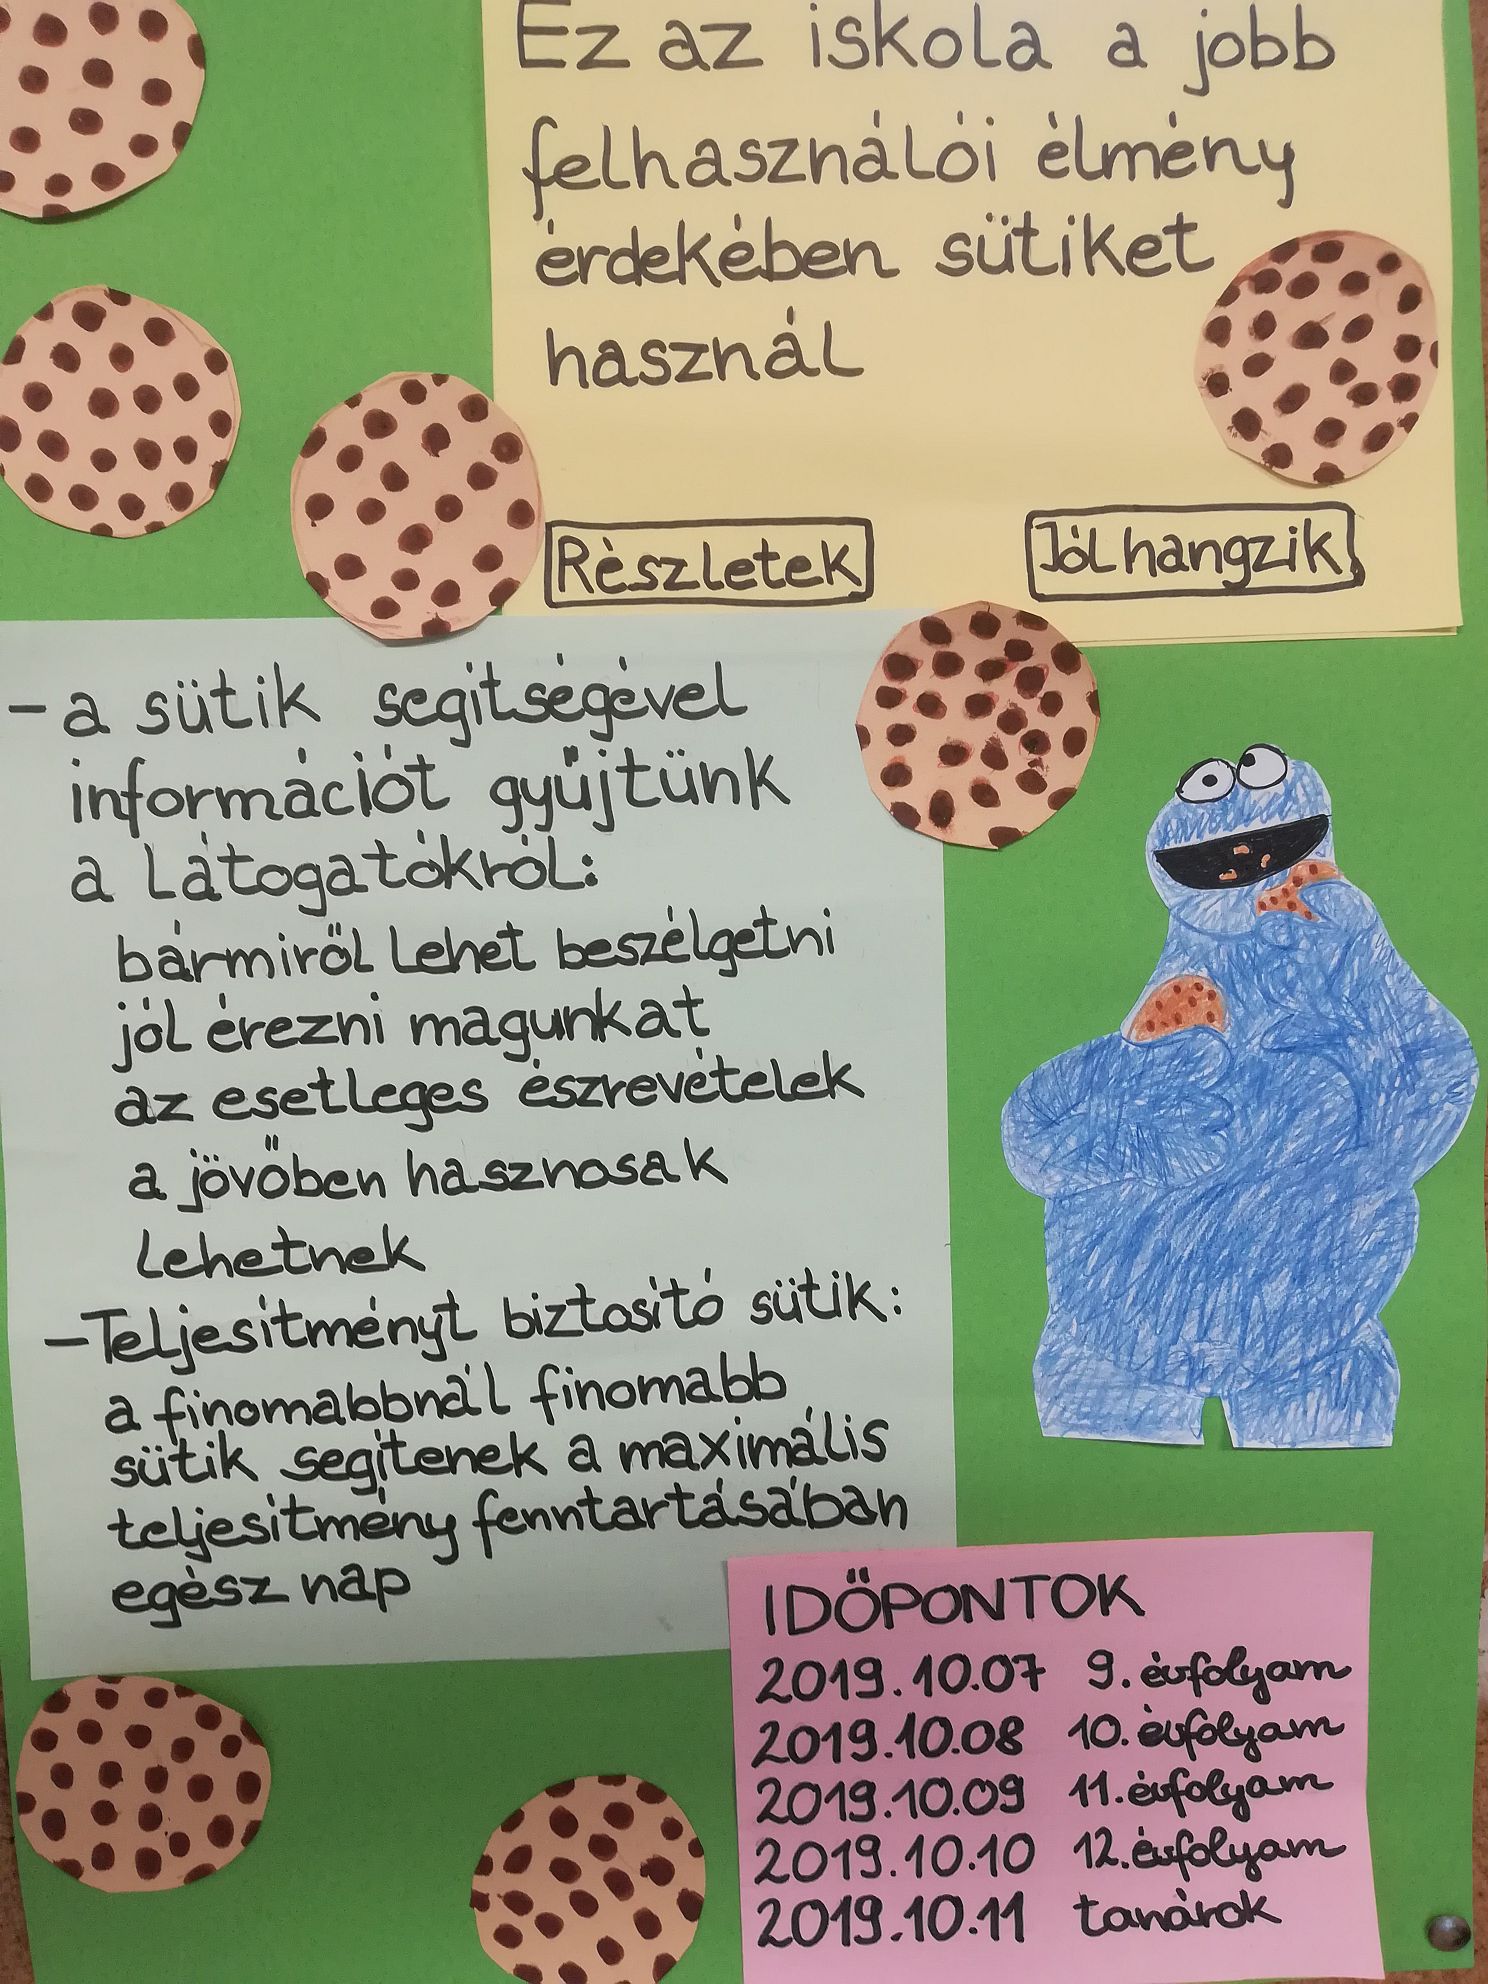 Ez az iskola a jobb
felhasználói élmény
érdekében sütiket
használ
Részletek
Jól hangzik
- a sütik segítségével
információt gyűjtünk
a látogatókról:
bármiről lehet beszélgetni
jól érezni magunkat
az esetleges észrevételek
a jövőben hasznosak
lehetnek
- Teljesítményt biztosító sütik:
a finomabbnál finomabb
sütik segítenek a maximális
teljesítmény fenntartásában
egész nap
IDŐPONTOK
2019.10.07 9. évfolyam
2019.10.08 10. évfolyam
2019.10.09 11. évfolyam
2019.10.10 12. évfolyam
2019.10.11 tanárok